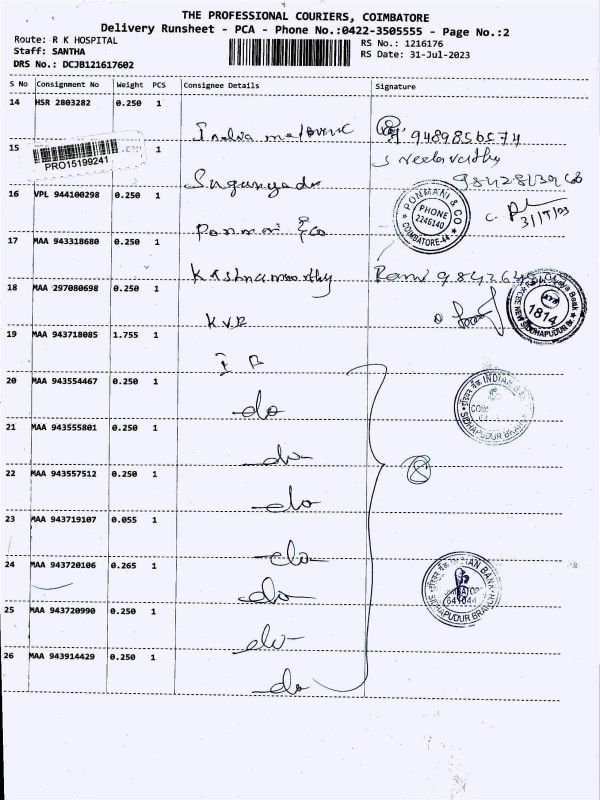 THE PROFESSIONAL COURIERS, COIMBATORE
Delivery Runsheet - PCA - Phone No.:0422-3505555 - Page No.:2
Route: R K HOSPITAL
RS No.: 1216176
Staff: SANTHA
RS Date: 31-Jul-2023
DRS No.: DCJB121617602
S No Consignment No Weight PCS Consignee Details Signature
14 HSR 2803282 0.250 1
9489856574
15 1
PRO15199241
16 VPL 944100298 0.250 1
PONMANI & CO
PHONE
2246140
COIMBATORE-44
Ponmani & Co
17 MAA 943318680 0.250 1
Krishnamoorthy Rami
18 MAA 297080698 0.250 1
KVB
1814
SIDHAPUDUR Br.
19 MAA 943718085 1.755 1
I B
20 MAA 943554467 0.250 1
do
INDIAN BANK
SIDHAPUDUR BRANCH
21 MAA 943555801 0.250 1
do
8
22 MAA 943557512 0.250 1
do
23 MAA 943719107 0.055 1
do
24 MAA 943720106 0.265 1
do
INDIAN BANK
641044
SIDHAPUDUR BRANCH
25 MAA 943720990 0.250 1
do
26 MAA 943914429 0.250 1
do